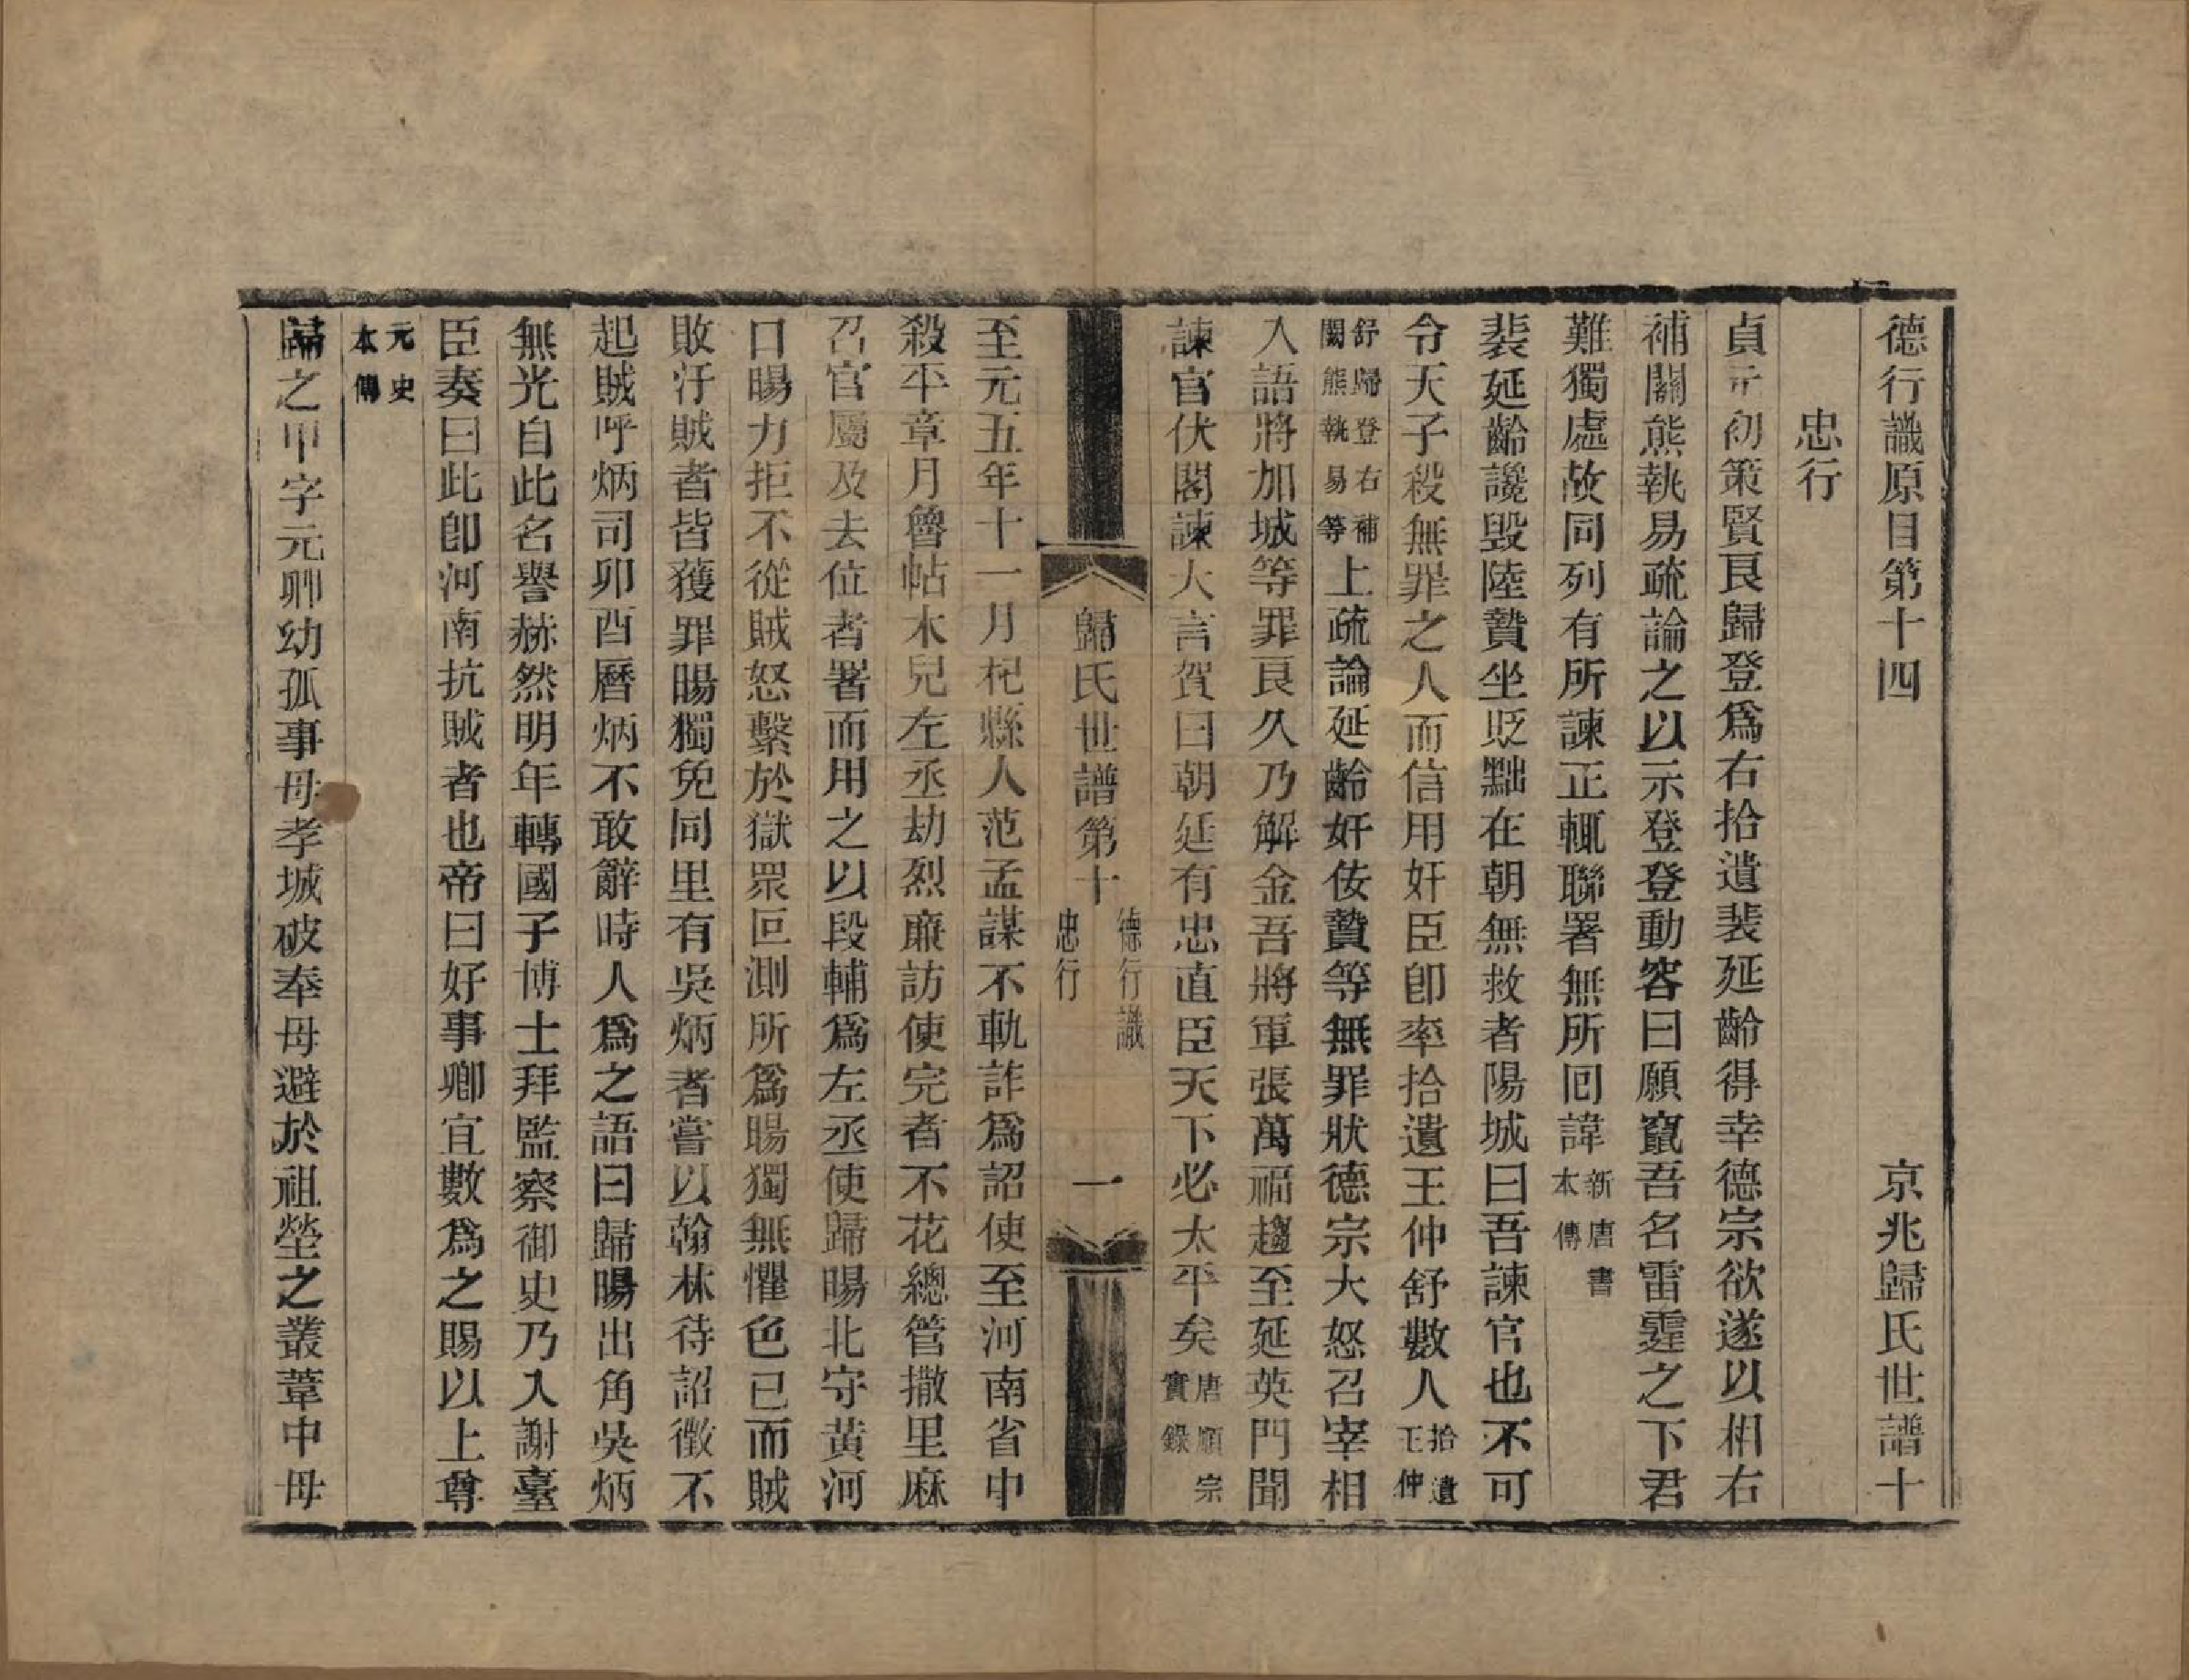 德行識原目第十四　京兆歸氏世譜十
忠行
貞元初策賢良歸登爲右拾遺裴延齡得幸德宗欲遂以相右
補闕熊執易疏論之以示登登動容曰願竄吾名雷霆之下君
難獨處故同列有所諫正輒聯署無所囘諱新唐書本傳
裴延齡讒毀陸贄坐貶黜在朝無救者陽城曰吾諫官也不可
令天子殺無罪之人而信用奸臣卽率拾遺王仲舒數人拾遺王仲
舒歸登右補闕熊執易等上疏論延齡奸佞贄等無罪狀德宗大怒召宰相
入語將加城等罪良久乃解金吾將軍張萬福趨至延英門聞
諫官伏閣諫大言賀曰朝廷有忠直臣天下必太平矣唐順宗實錄
歸氏世譜第十　德行識　忠行　一
至元五年十一月杞縣人范孟謀不軌詐爲詔使至河南省中
殺平章月魯帖木兒左丞劫烈廉訪使完者不花總管撒里麻
召官屬及去位者署而用之以段輔爲左丞使歸暘北守黃河
口暘力拒不從賊怒繫於獄眾叵測所爲暘獨無懼色已而賊
敗汙賊者皆獲罪暘獨免同里有吳炳者嘗以翰林待詔徵不
起賊呼炳司卯酉曆炳不敢辭時人爲之語曰歸暘出角吳炳
無光自此名譽赫然明年轉國子博士拜監察御史乃入謝臺
臣奏曰此卽河南抗賊者也帝曰好事卿宜數爲之賜以上尊
元史本傳
歸之甲字元卿幼孤事母孝城破奉母避於祖塋之叢葦中母